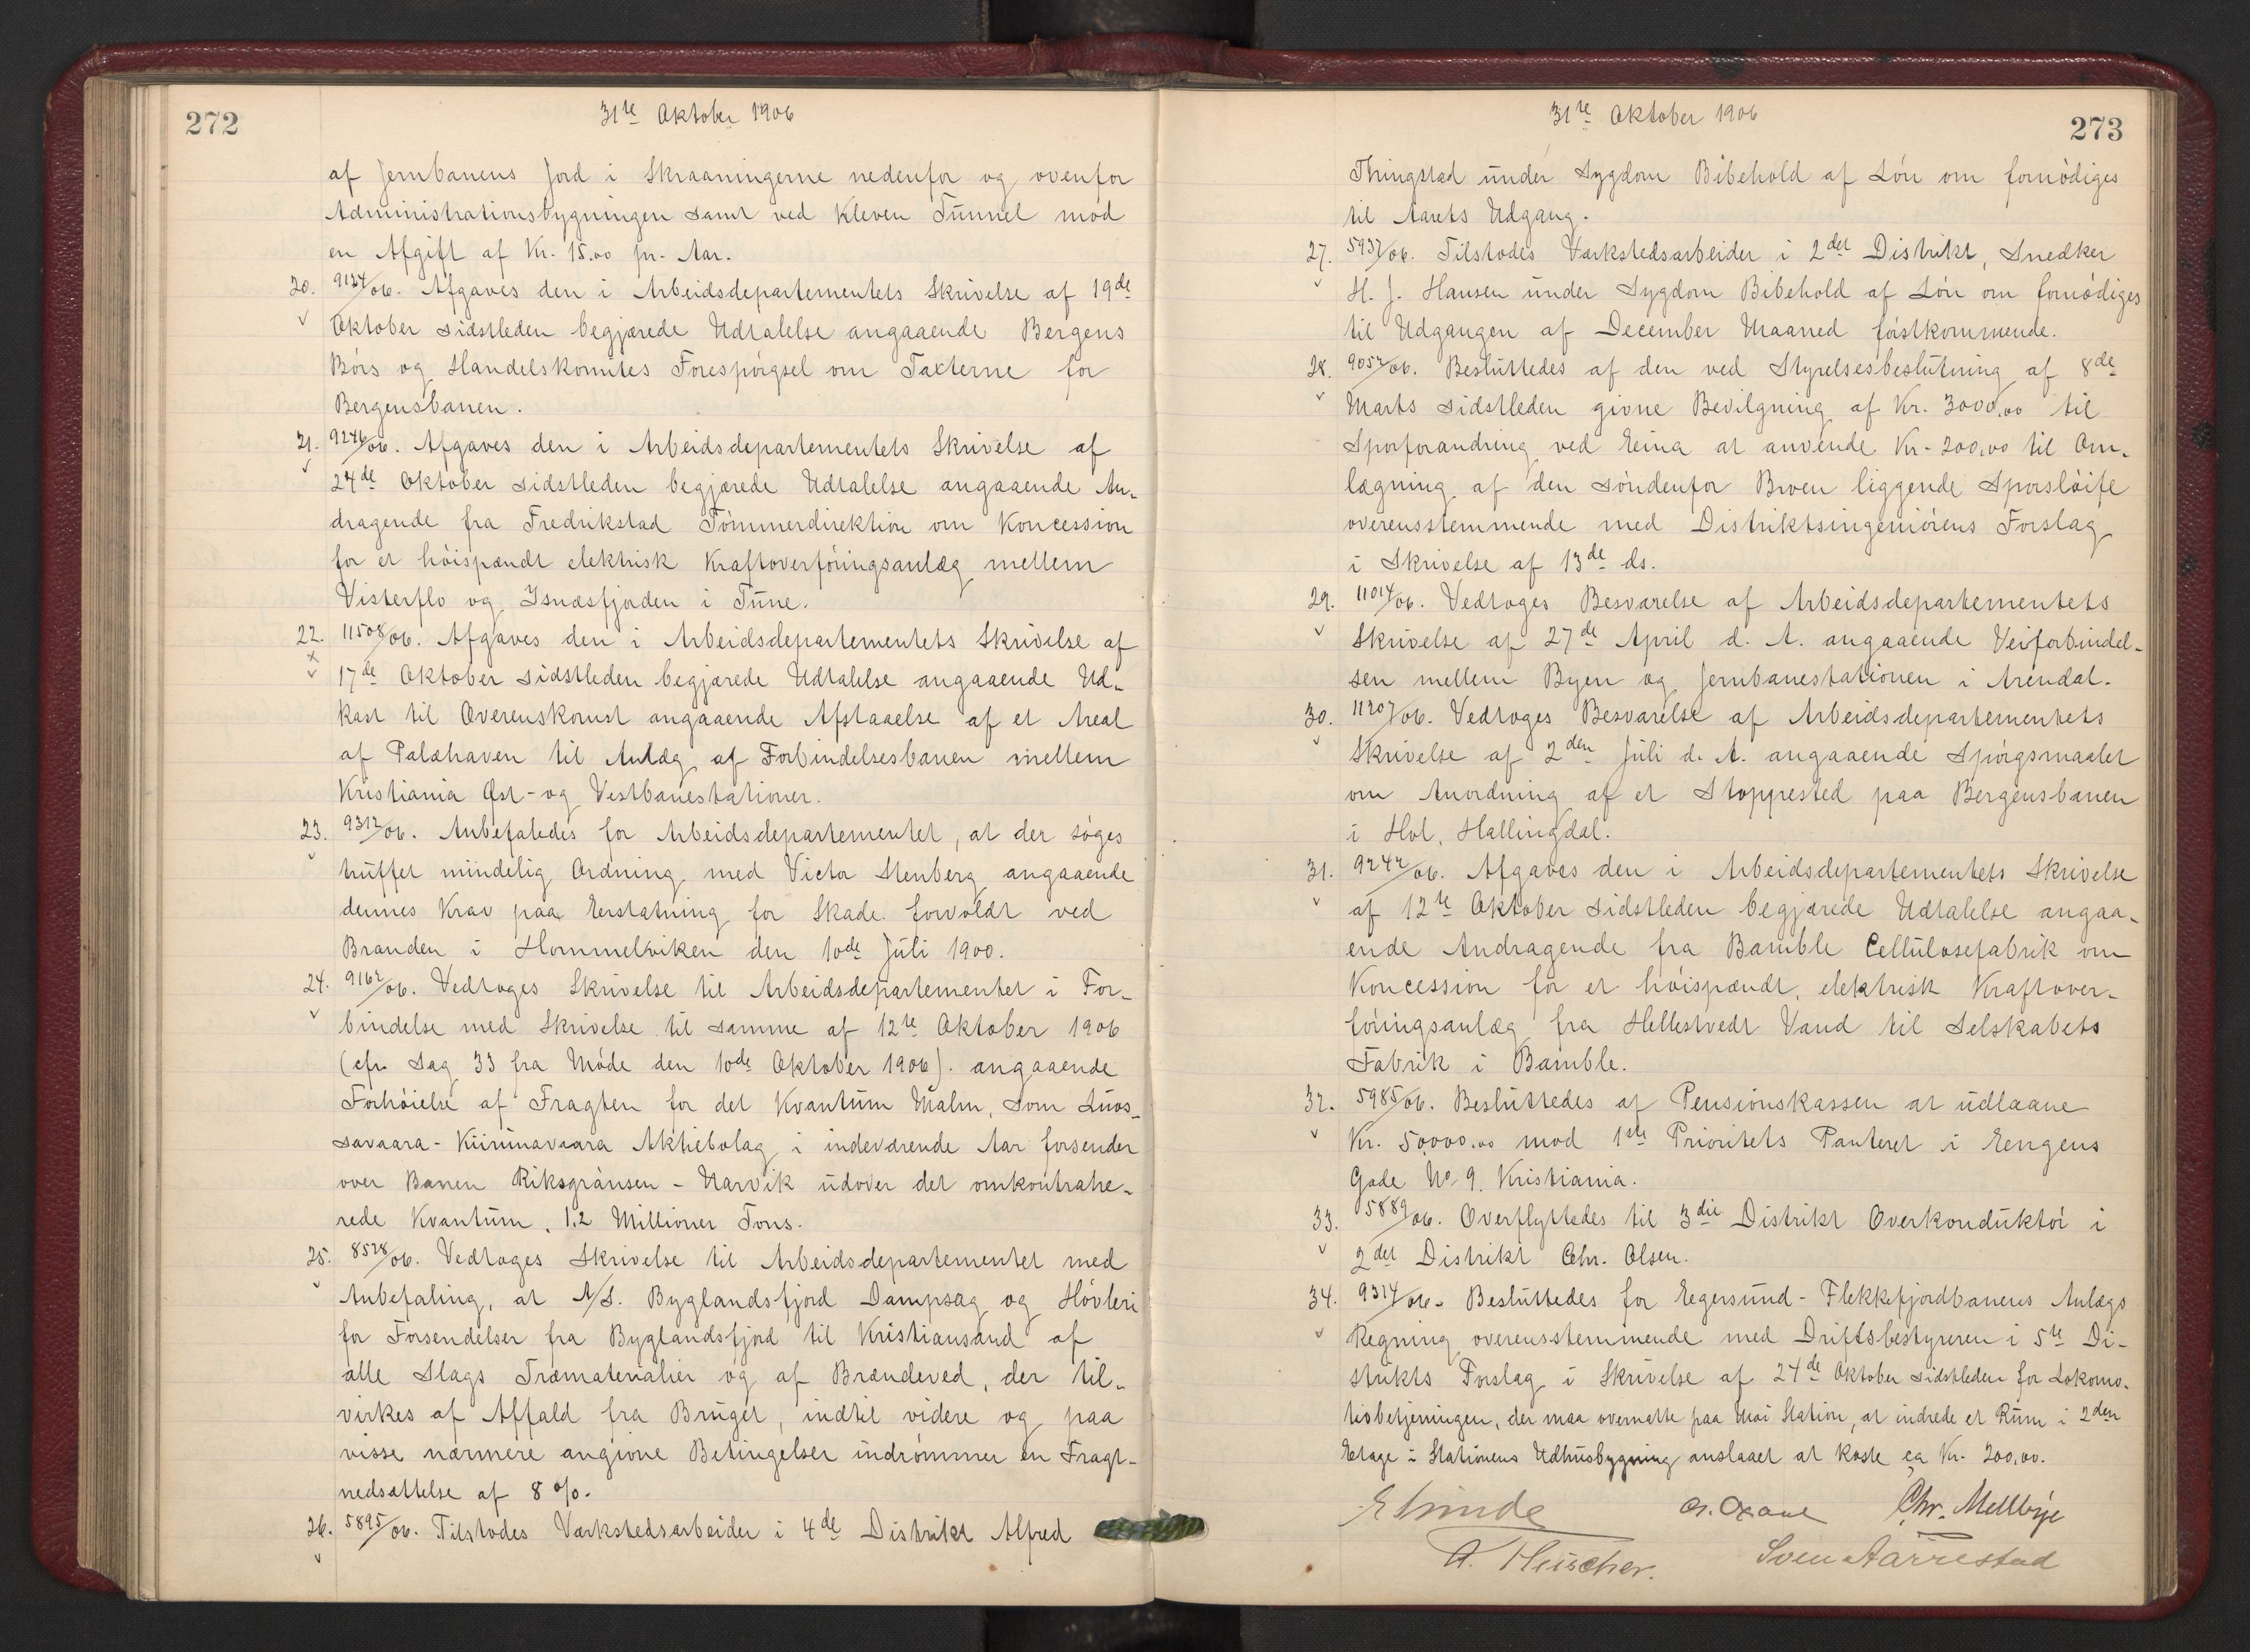 272
31te Oktober 1906
af Jernbanens Jord i Skraaningerne nedenfor og ovenfor
Administrationsbygningen samt ved Kleven Tunnel mod
en Afgift af Kr. 15.00 pr. Aar.
20. 9124/06. Afgaves den i Arbeidsdepartementets Skrivelse af 19de
Oktober sidstleden begjærede Udtalelse angaaende Bergens
Börs og Handelskomites Forespörgsel om Taxterne for
Bergensbanen.
21. 9246/06. Afgaves den i Arbeidsdepartementets Skrivelse af
24de Oktober sidstleden begjærede Udtalelse angaaende An-
dragende fra Fredrikstad Tömmerdirektion om Koncession
for et höispændt elektrisk Kraftoverföringsanlæg mellem
Visterflo og Isnæsfjorden i Tune.
22. 11508/06. Afgaves den i Arbeidsdepartementets Skrivelse af
17de Oktober sidstleden begjærede Udtalelse angaaende Ud-
kast til Overenskomst angaaende Afstaaelse af et Areal
af Palæhaven til Anlæg af Forbindelsesbanen mellem
Kristiania Øst- og Vestbanestationer.
23. 9312/06. Anbefaledes for Arbeidsdepartementet, at der söges
truffet mindelig Ordning med Victor Stenberg angaaende
dennes Krav paa Erstatning for Skade forvoldt ved
Branden i Hommelviken den 10de Juli 1900.
24. 9162/06. Vedtoges Skrivelse til Arbeidsdepartementet i For-
bindelse med Skrivelse til samme af 12te Oktober 1906
(cfr. Sag 33 fra Möde den 10de Oktober 1906). angaaende
Forhöielse af Fragten for det Kvantum Malm, som Luos-
savaara - Kiirunavaara Aktiebolag i indeværende Aar forsender
over Banen Riksgränsen - Narvik udover det omkontrahe-
rede Kvantum, 1,2 Millioner Tons.
25. 8528/06. Vedtoges Skrivelse til Arbeidsdepartementet med
Anbefaling, at A/S. Byglandsfjord Dampsag og Hövleri
for Forsendelser fra Byglandsfjord til Kristiansand af
alle Slags Træmaterialier og af Brændeved, der til-
virkes af Affald fra Bruget, indtil videre og paa
visse nærmere angivne Betingelser indrömmes en Fragt-
nedsættelse af 8 %.
26. 5895/06. Tilstodes Værkstedsarbeider i 4de Distrikt Alfred
273
31te Oktober 1906
Thringstad under Sygdom Bibehold af Lön om fornödiges
til Aarets Udgang.
27. 5937/06. Tilstodes Værkstedsarbeider i 2det Distrikt, Snedker
H. J. Hansen under Sygdom Bibehold af Lön om fornödiges
til Udgangen af December Maaned förstkommende.
28. 9052/06. Besluttedes af den ved Styrelsesbeslutning af 8de
Marts sidstleden givne Bevilgning af Kr. 3000,00 til
Sporforandring ved Eina at anvende Kr. 200,00 til Om-
lægning af den söndenfor Broen liggende Sporslöife
overensstemmende med Distriktsingeniörens Forslag
i Skrivelse af 13de ds.
29. 11014/06. Vedtoges Besvarelse af Arbeidsdepartementets
Skrivelse af 27de April d. A. angaaende Veiforbindel-
sen mellem Byen og Jernbanestationen i Arendal.
30. 11207/06. Vedtoges Besvarelse af Arbeidsdepartementets
Skrivelse af 2den Juli d. A. angaaende Spörgsmaalet
om Anordning af et Stoppested paa Bergensbanen
i Hol, Hallingdal.
31. 9242/06. Afgaves den i Arbeidsdepartementets Skrivelse
af 12te Oktober sidstleden begjærede Udtalelse angaa-
ende Andragende fra Bamble Cellulosefabrik om
Koncession for et höispændt, elektrisk Kraftover-
föringsanlæg fra Hellestvedt Vand til Selskabets
Fabrik i Bamble.
32. 5985/06. Besluttedes af Pensionskassen at udlaane
Kr. 50,000.00 mod 1ste Prioritets Panteret i Eengens
Gade No 9, Kristiania.
33. 5889/06. Overflyttedes til 3die Distrikt Overkonduktör i
2det Distrikt Chr. Olsen.
34. 9314/06. Besluttedes for Egersund - Flekkefjordbanens Anlægs
Regning overensstemmende med Driftsbestyreren i 5te Di-
strikts Forslag i Skrivelse af 24de Oktober sidstleden for Lokomo-
tivbetjeningen, der maa overnatte paa Moi Station, at indrede et Rum i 2den
Etage i Stationens Udhusbygning anslaaet at koste ca Kr. 200,00.
Chr. Mellbye
A. Fleischer.
Sven Aarrestad